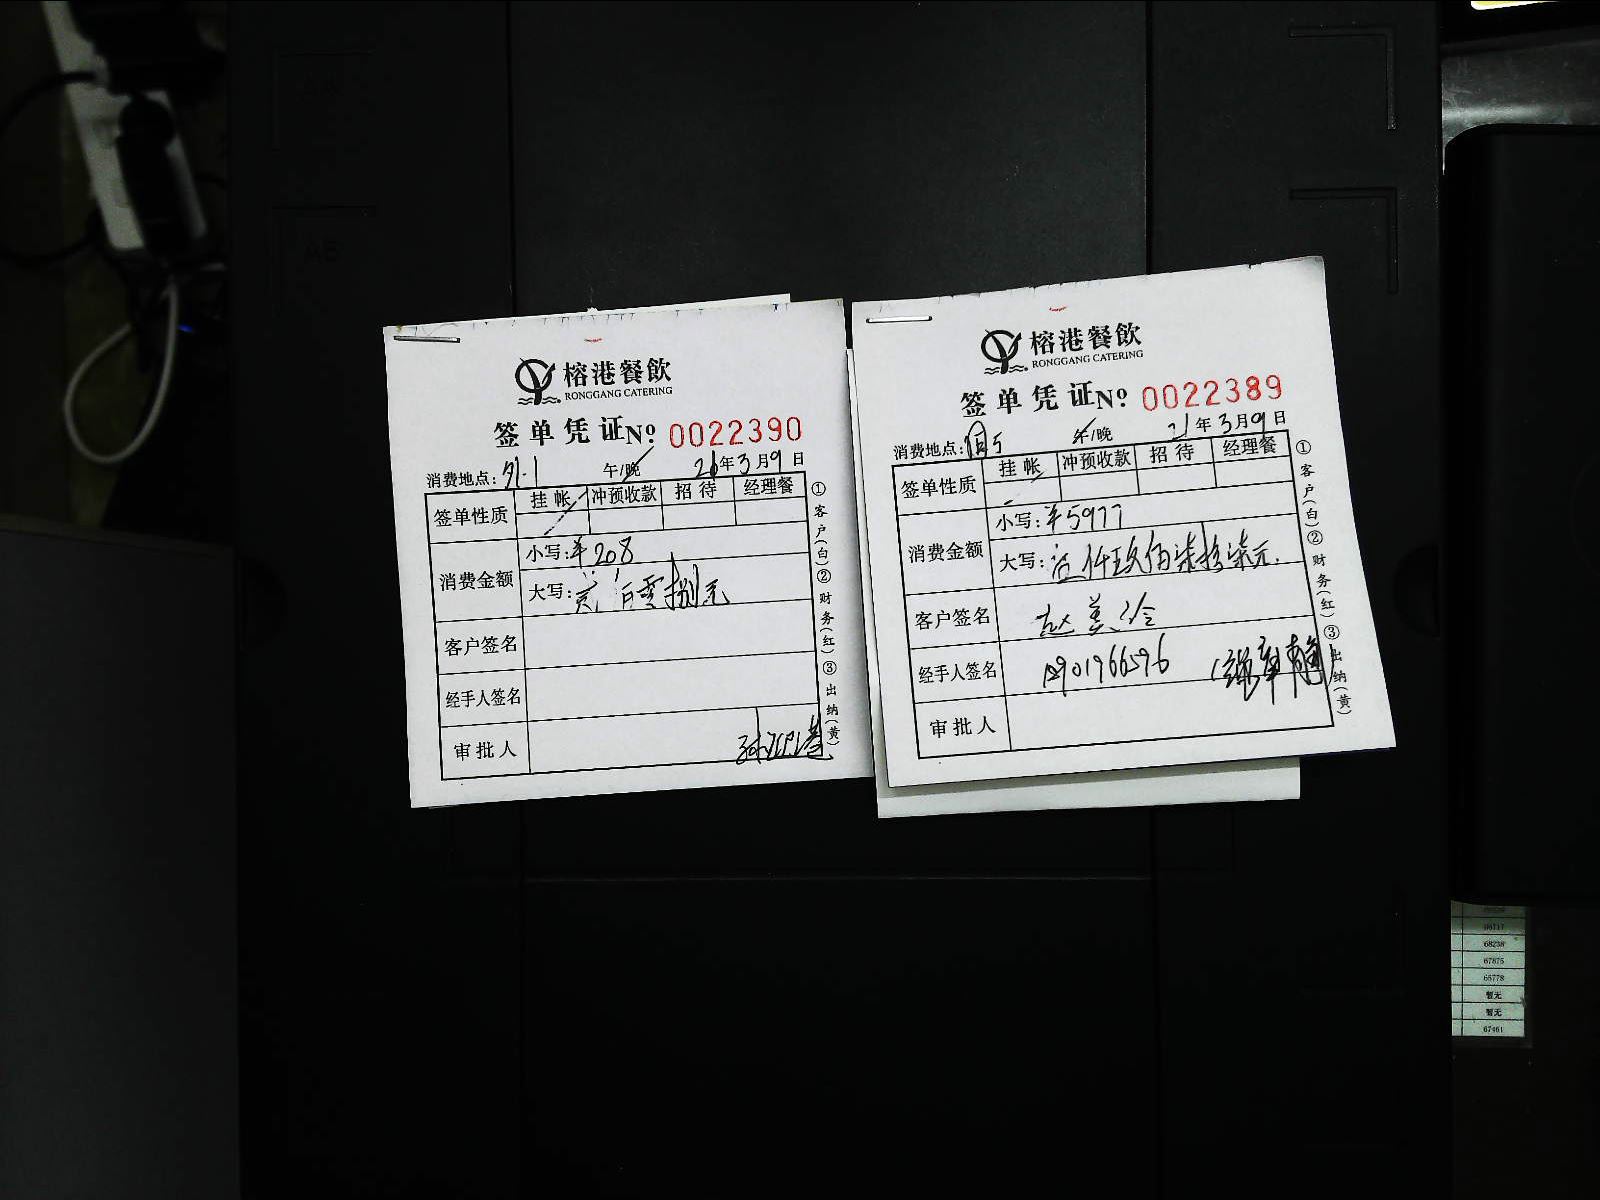 榕港餐飲
RONGGANG CATERING
签单凭证 No 0022390
消费地点: 外1 午/晚 21年3月9日
签单性质 挂帐 冲预收款 招待 经理餐
消费金额
小写: ¥208
大写: 贰佰零捌元
客户签名
经手人签名
审批人
①客户(白)②财务(红)③出纳(黄)
榕港餐飲
RONGGANG CATERING
签单凭证 No 0022389
消费地点: 午/晚 21年3月9日
签单性质 挂帐 冲预收款 招待 经理餐
消费金额
小写: ¥5977
大写: 伍仟玖佰柒拾柒元
客户签名 赵美冷
经手人签名
审批人
①客户(白)②财务(红)③出纳(黄)
68238
67875
65778
暂无
暂无
67461